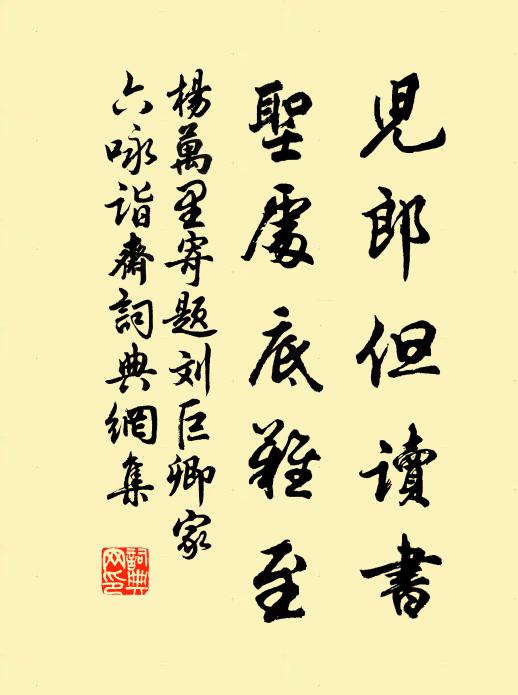 児郎但讀書
聖處底難至
楊萬里寄題刘巨卿家
六咏詣齋詞典網集
詞典网印